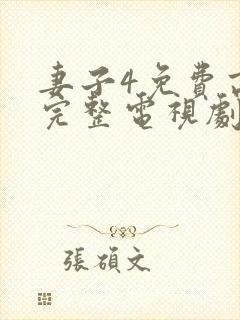 妻子4免費
完整電視劇
張碩文